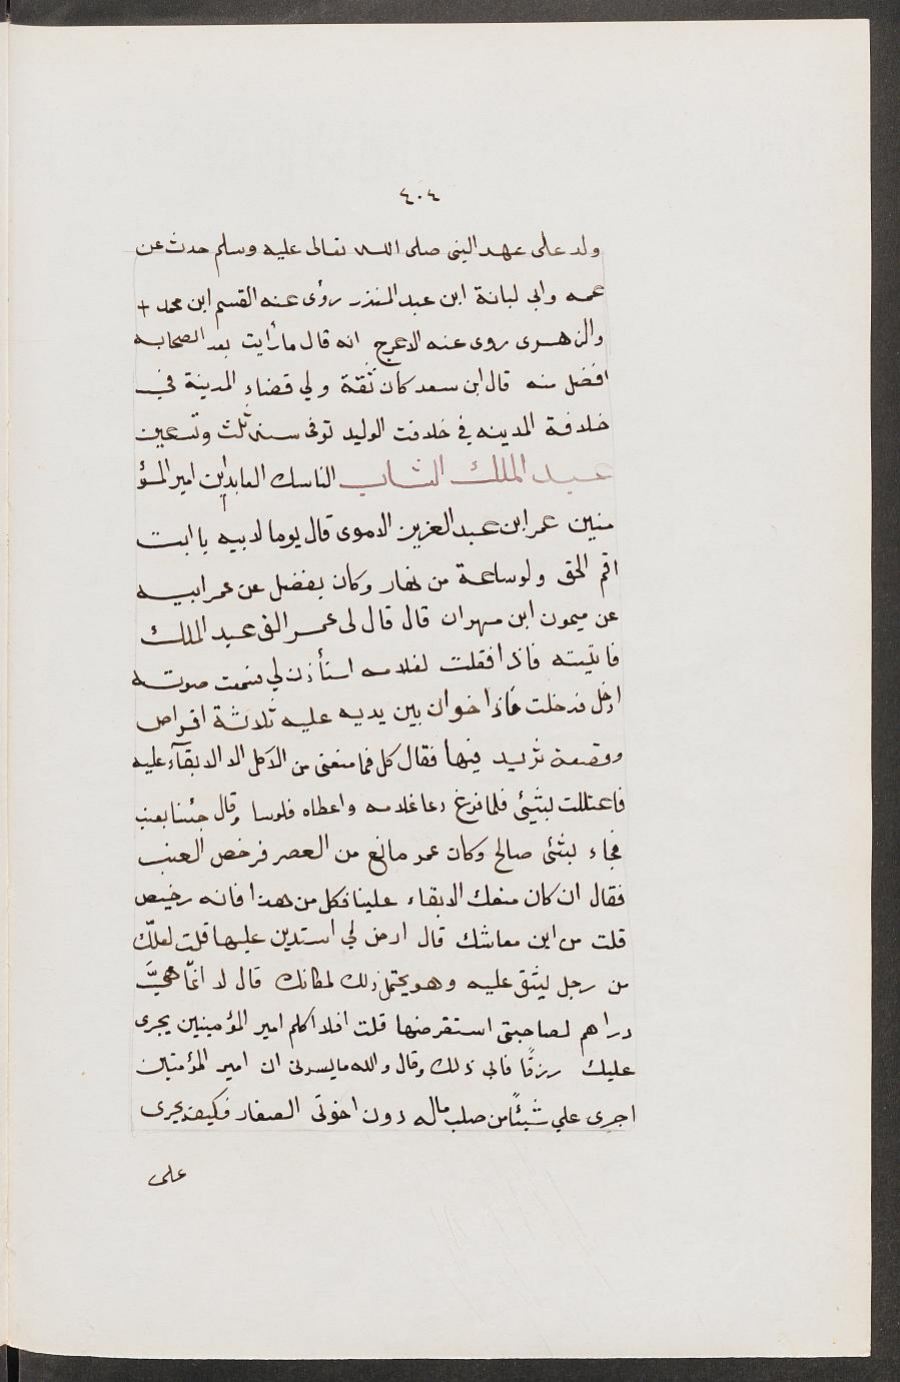 ٤٠٤
ولد على عهد النبى صلى الله تعالى عليه وسلم حدث عن
عمه وابى لبانة ابن عبد المنذر روى عنه القسم ابن محمد +
والزهرى روى عنه الاعرج انه قال ما رأيت بعد الصحابه
افضل منه قال ابن سعد كان ثقة ولي قضاء المدينة في
خلافة المدينه في خلافت الوليد توفى سنه ثلث وتسعين
عبد الملك الشاب الناسك العابد ابن امير المؤ
منين عمر ابن عبد العزيز الاموى قال يوما لابيه يا ابت
اقم الحق ولو ساعة من نهار وكان يفضل عن عمر ابيه
عن ميمون ابن مهران قال قال لى عمر الق عبد الملك
فاتيته فاذا فقلت لغلامه استأذن لي فسمعت صوته
ادخل فدخلت فاذا خوان بين يديه عليه ثلاثة اقراص
وقصعة ثريد فيها فقال كل فما منعنى من الاكل الا الابقآء عليه
فاعتللت بشئ فلما فرغ دعا غلامه واعطاه فلوسا وقال جئنا بعنب
فجاء بشئ صالح وكان عمر مانع من العصر فرخص العنب
فقال ان كان منعك الابقاء علينا فكل من هذا فانه رخيص
قلت من اين معاشك قال ارض لي استدين عليها قلت لعلّك
من رجل ليشق عليه وهو يحتمل ذلك لمكانك قال لا انمّا هيَ
دراهم لصاحبتى استقرضها قلت افلا اكلم امير المؤمنين يجرى
عليك رزقًا فابى ذلك وقال والله ما يسرنى ان امير المؤمنين
اجرى علي شيئًا من صلب ماله دون اخوتى الصغار فكيف يجرى
على